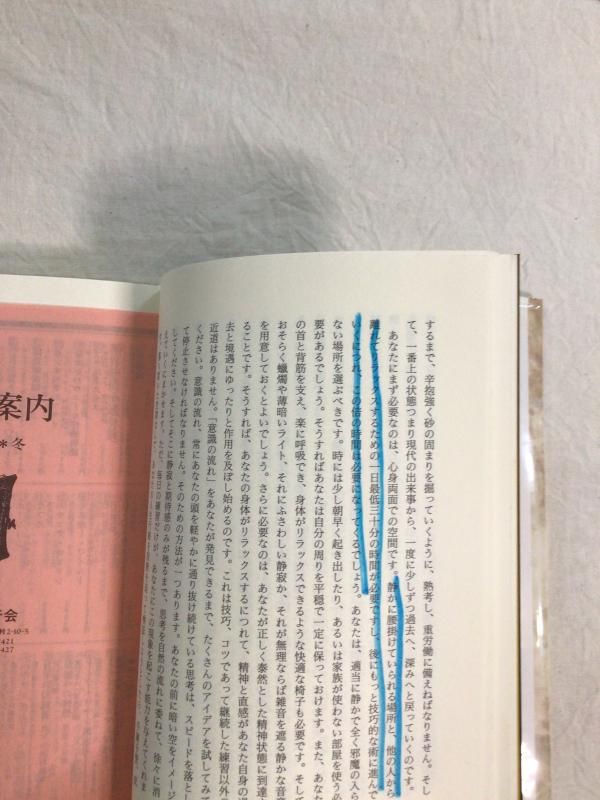 するまで、辛抱強く砂の固まりを掘っていくように、熟考し、重労働に備えねばなりません。そし
て、一番上の状態つまり現代の出来事から、一度に少しずつ過去へ、深みへと戻っていくのです。
あなたにまず必要なのは、心身両面での空間です。静かに腰掛けていられる場所と、他の人から
離れてリラックスするための一日最低三十分の時間が必要ですし、後にもっと技巧的な術に進んで
いくにつれ、この倍の時間は必要になってくるでしょう。あなたは、適当に静かで全く邪魔の入ら
ない場所を選ぶべきです。時には少し朝早く起き出したり、あるいは家族が使わない部屋を使う必
要があるでしょう。そうすればあなたは自分の周りを平穏で一定に保っておけます。また、あなた
の首と背筋を支え、楽に呼吸でき、身体がリラックスできるような快適な椅子も必要です。そして
おそらく蠟燭や薄暗いライト、それにふさわしい静寂か、それが無理ならば雑音を遮る静かな音
を用意しておくとよいでしょう。さらに必要なのは、あなたが正しく泰然とした精神状態に到達
ることです。そうすれば、あなたの身体がリラックスするにつれて、精神と直感があなた自身の過
去と境遇にゆったりと作用を及ぼし始めるのです。これは技巧、コツであって継続した練習以外
近道はありません。「意識の流れ」をあなたが発見できるまで、たくさんのアイデアを試してみて
ください。意識の流れ、常にあなたの頭を軽やかに通り抜け続けている思考は、スピードを落とし
て停止させなければなりません。そのための方法が一つあります。あなたの前に暗い空をイメージ
してください。そしてそこに静寂と期待感のみが残るまで、思考を自然の流れに委ねて、徐々に消
えていくにまかせます。ただ、毎日の練習だけが、あなたにこの現象を起こす能力を与えてくれま
案内
*冬
会
村2-10-5
421
-427